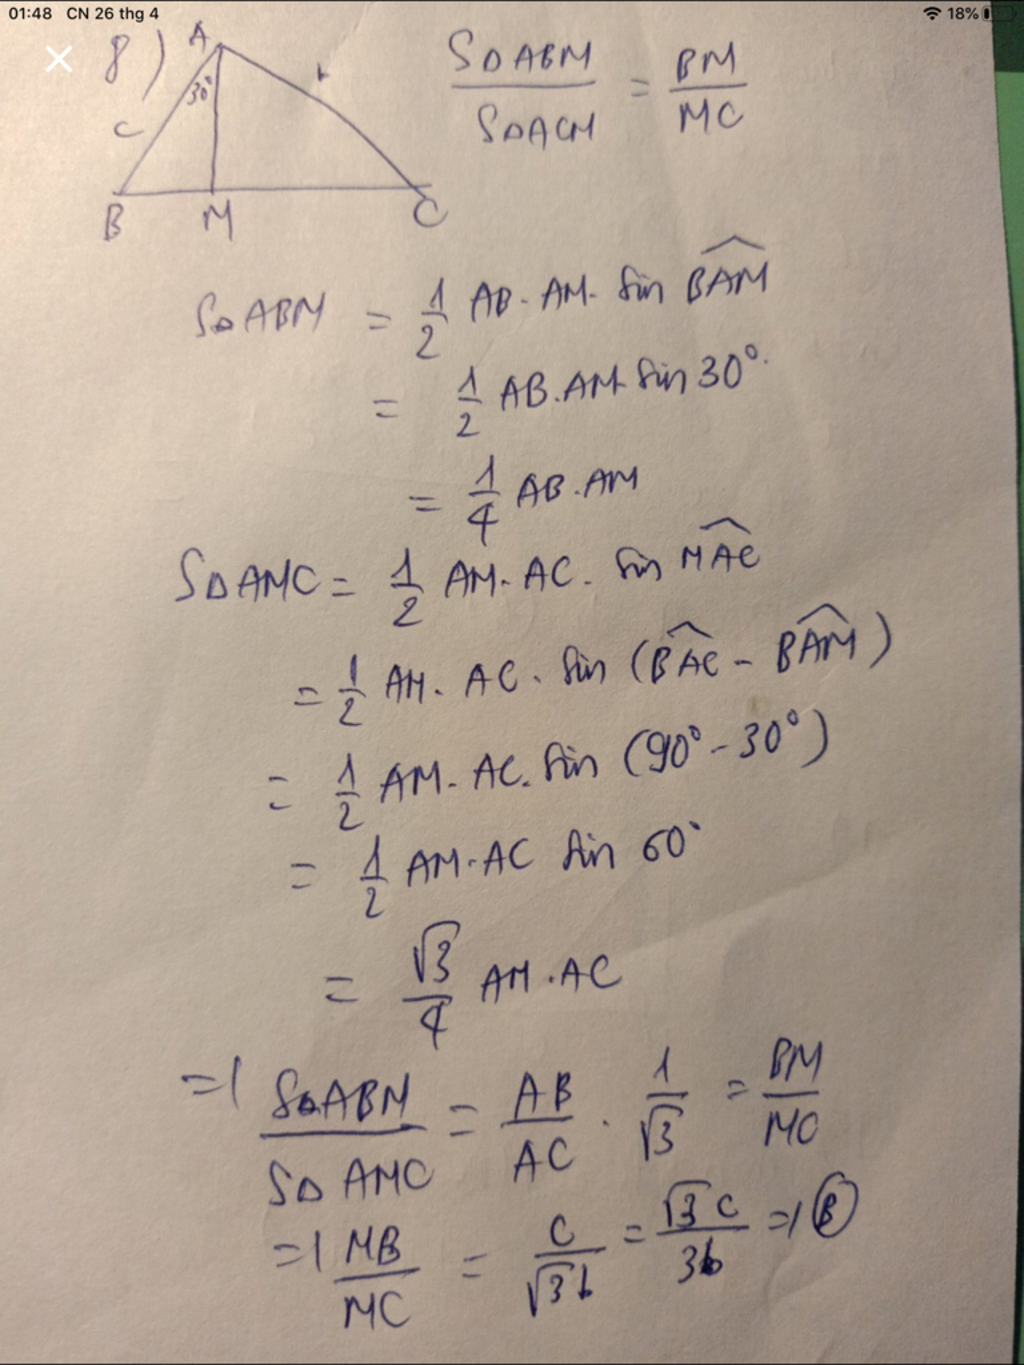 01:48 CN 26 thg 4 18%
8)
A
30°
C
B M C
SΔABM / SΔACM = BM / MC
SΔABM = 1/2 AB. AM. sin BAM
= 1/2 AB.AM sin 30°.
= 1/4 AB.AM
SΔAMC = 1/2 AM. AC. sin MAC
= 1/2 AM. AC. sin (BAC - BAM)
= 1/2 AM. AC. sin (90° - 30°)
= 1/2 AM.AC sin 60°
= √3/4 AM.AC
=> SΔABM / SΔAMC = AB / AC . 1/√3 = BM / MC
=> MB / MC = C / √3b = √3 C / 3b => B